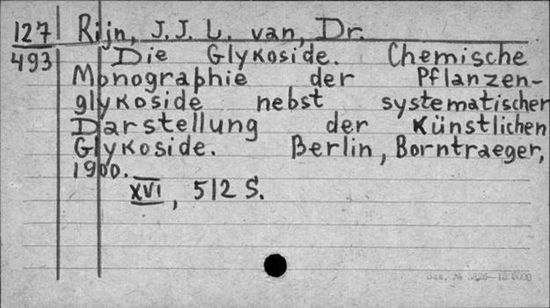 127 Rijn, J. J. L. van, Dr.
493 Die Glykoside. Chemische
Monographie der Pflanzen-
glykoside nebst systematischer
Darstellung der Künstlichen
Glykoside. Berlin, Borntraeger,
1900.
XVI, 512 S.